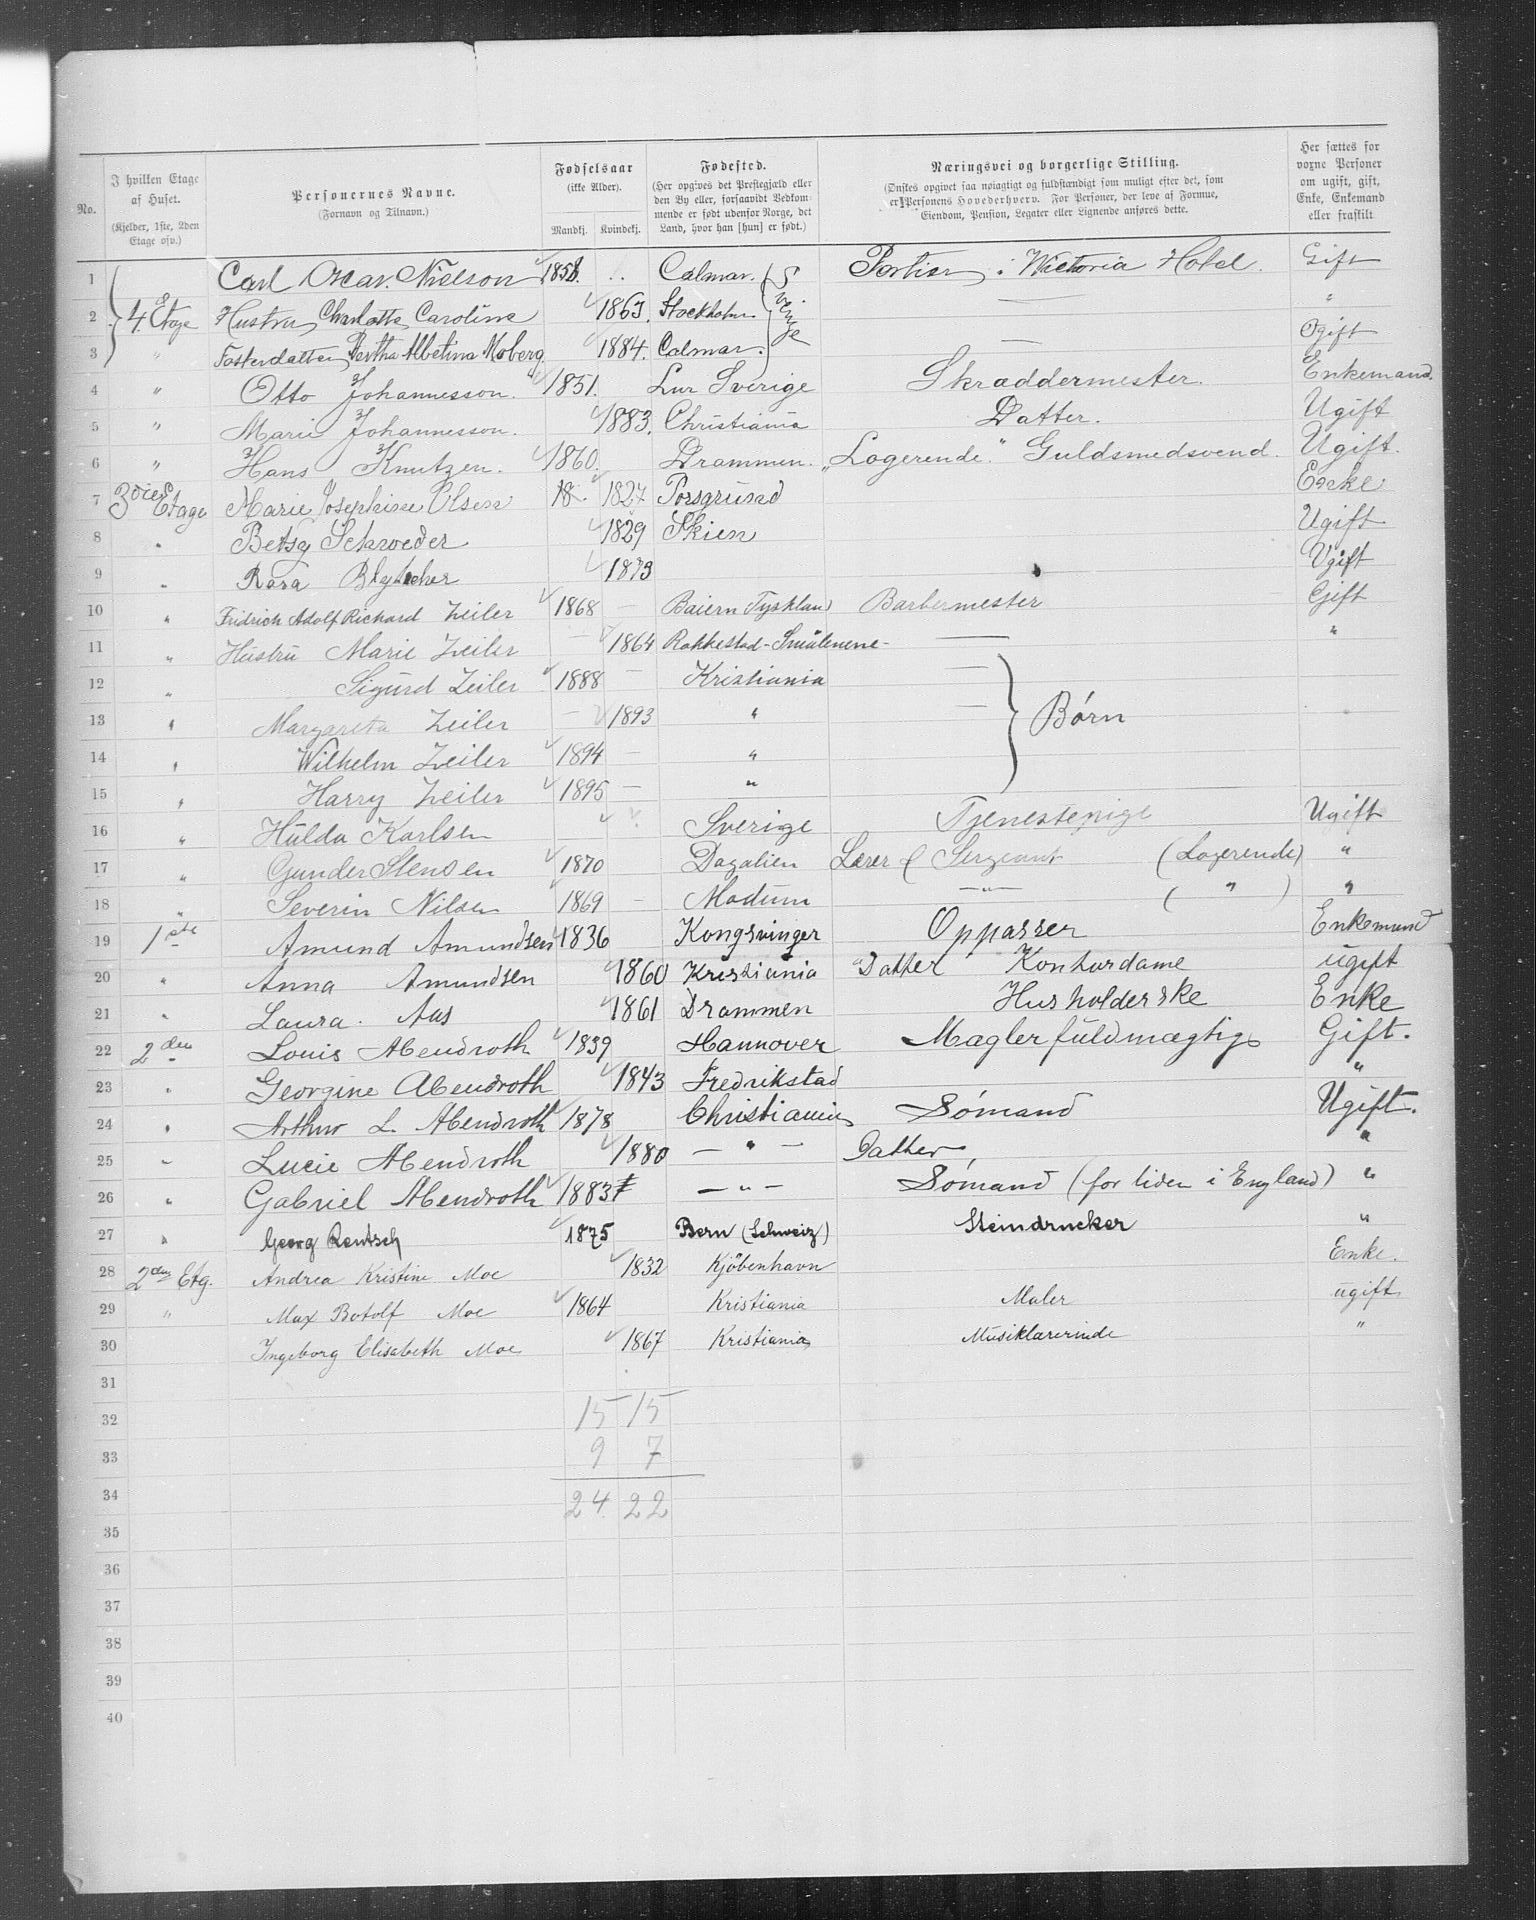 No.
I hvilken Etage af Huset.
(Kjelder, 1ste, 2den Etage osv.)
Personernes Navne.
(Fornavn og Tilnavn.)
Fødselsaar
(ikke Alder).
Mandkj. Kvindekj.
Fødested.
(Her opgives det Prestegjæld eller
den By eller, forsaavidt Vedkom-
mende er født udenfor Norge, det
Land, hvor han [hun] er født.)
Næringsvei og borgerlige Stilling.
(Ønstes opgivet saa nøiagtigt og fuldstændigt som muligt efter det, som
er Personens Hovederhverv. For Personer, der leve af Formue,
Eiendom, Pension, Legater eller Lignende anføres dette.
Her sættes for
voxne Personer
om ugift, gift,
Enke, Enkemand
eller fraskilt
1 Carl Oscar Nielson 1858. Calmar. Portier i Wictoria Hotel. Gift
2 4. Etage Hustru Charlotta Caroline 1863. Stockholm Sverige — "
3 " Fosterdatter Bertha Albetina Moberg. 1884. Calmar. — Ogift
4 " Otto Johannesson. 1851. Lur Sverige Skræddermester. Enkemand.
5 " Marie Johannesson. 1883. Christiania Datter. Ugift
6 " Hans Knutzen. 1860. Drammen. „Logerende." Guldsmedsvend. Ugift.
7 3die Etage Marie Josephine Olsen 18. 1827 Porsgrund Enke
8 " Betsy Schroeder 1829 Skien Ugift
9 " Rosa 1873 Ugift
10 " Fridrich Adolf Richard Zeiler 1868 — Baiern Tyskland Barbermester Gift
11 " Hustru Marie Zeiler — 1864 Rakkestad - Smålenene - — "
12 " Sigurd Zeiler 1888 — Kristiania —
13 " Margareta Zeiler — 1893 " — Børn
14 " Wilhelm Zeiler 1894 — "
15 " Harry Zeiler 1895 — "
16 " Hulda Karlsen Sverige Tjenestepige Ugift
17 " Gunder Stensen 1870 Dagalien Lærer & Sergeant (Logerende) "
18 " Severin Nilsen 1869 — Modum — " — ( " ) "
19 1ste Amund Amundsen 1836 Kongsvinger Oppasser Enkemand
20 " Anna Amundsen 1860 Kristiania Datter Kontordame ugift
21 " Laura Aas 1861 Drammen Husholderske Enke
22 2den Louis Abendroth 1839 Hannover Mæglerfuldmægtig Gift.
23 " Georgine Abendroth 1843 Fredrikstad "
24 " Arthur L. Abendroth 1878 Christiania Sømand Ugift.
25 " Lucie Abendroth 1880 — " — Datter "
26 " Gabriel Abendroth 1883 — " — Sømand (for tiden i England) "
27 " Georg Rentsch 1875 Bern (Schweiz) Steindrucker "
28 2den Etg. Andrea Kristine Moe 1832 Kjöbenhavn Enke.
29 " Max Botolf Moe 1864 Kristiania Maler ugift
30 Ingeborg Elisabeth Moe 1867 Kristiania Musiklærerinde "
31
32 15 15
33 9 7
34 24. 22
35
36
37
38
39
40